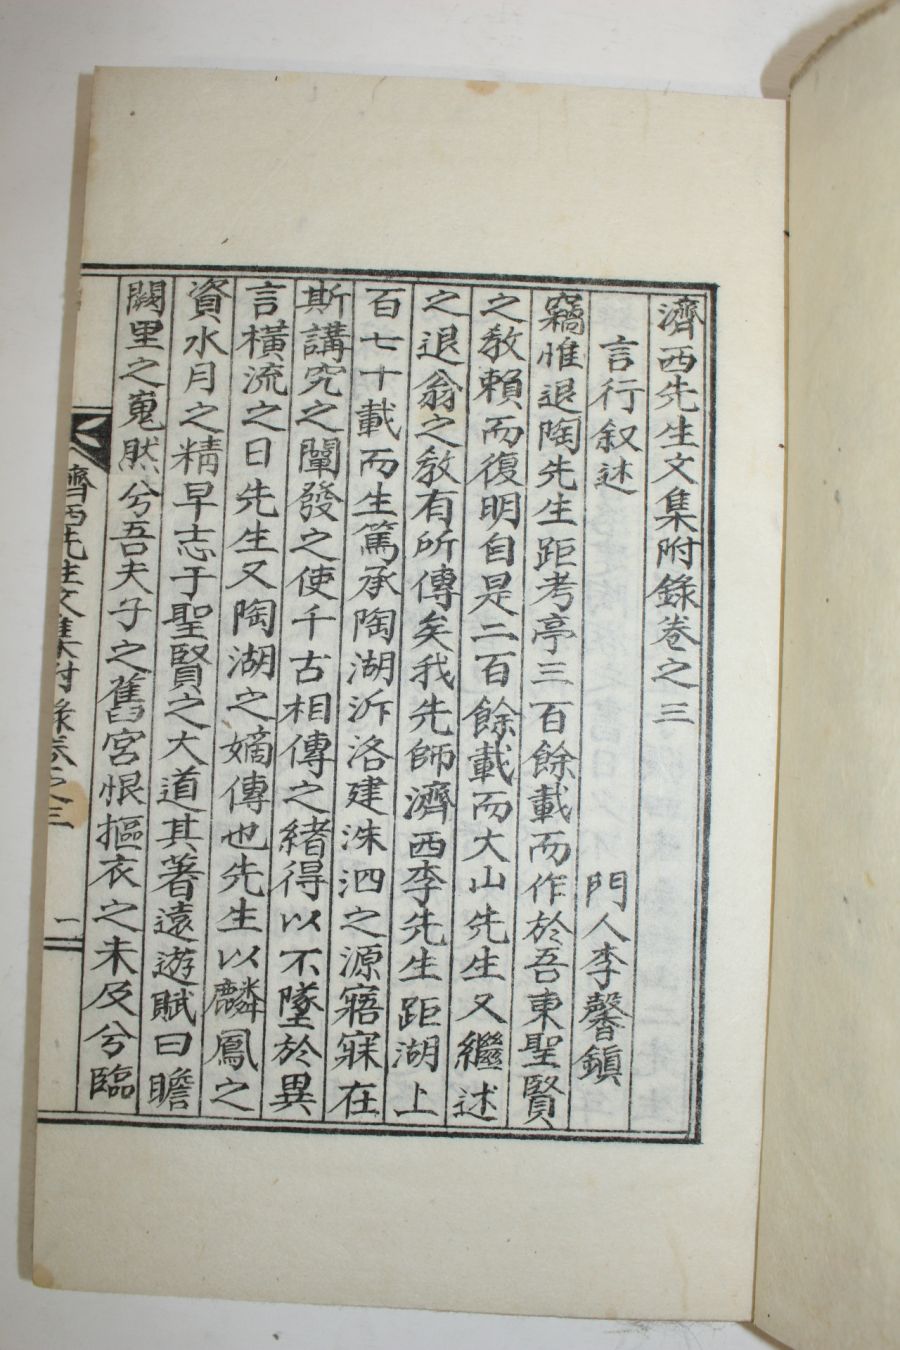 濟西先生文集附錄卷之三
言行叙述
門人李馨鎭
竊惟退陶先生距考亭三百餘載而作於吾東聖賢
之敎賴而復明自是二百餘載而大山先生又繼述
之退翁之敎有所傳矣我先師濟西李先生距湖上
百七十載而生篤承陶湖泝洛建洙泗之源寤寐在
斯講究之闡發之使千古相傳之緖得以不墜於異
言橫流之日先生又陶湖之嫡傳也先生以麟鳳之
資水月之精早志于聖賢之大道其著遠遊賦曰瞻
闕里之嵬然兮吾夫子之舊宮恨摳衣之未及兮臨
濟西先生文集附錄卷之三
一